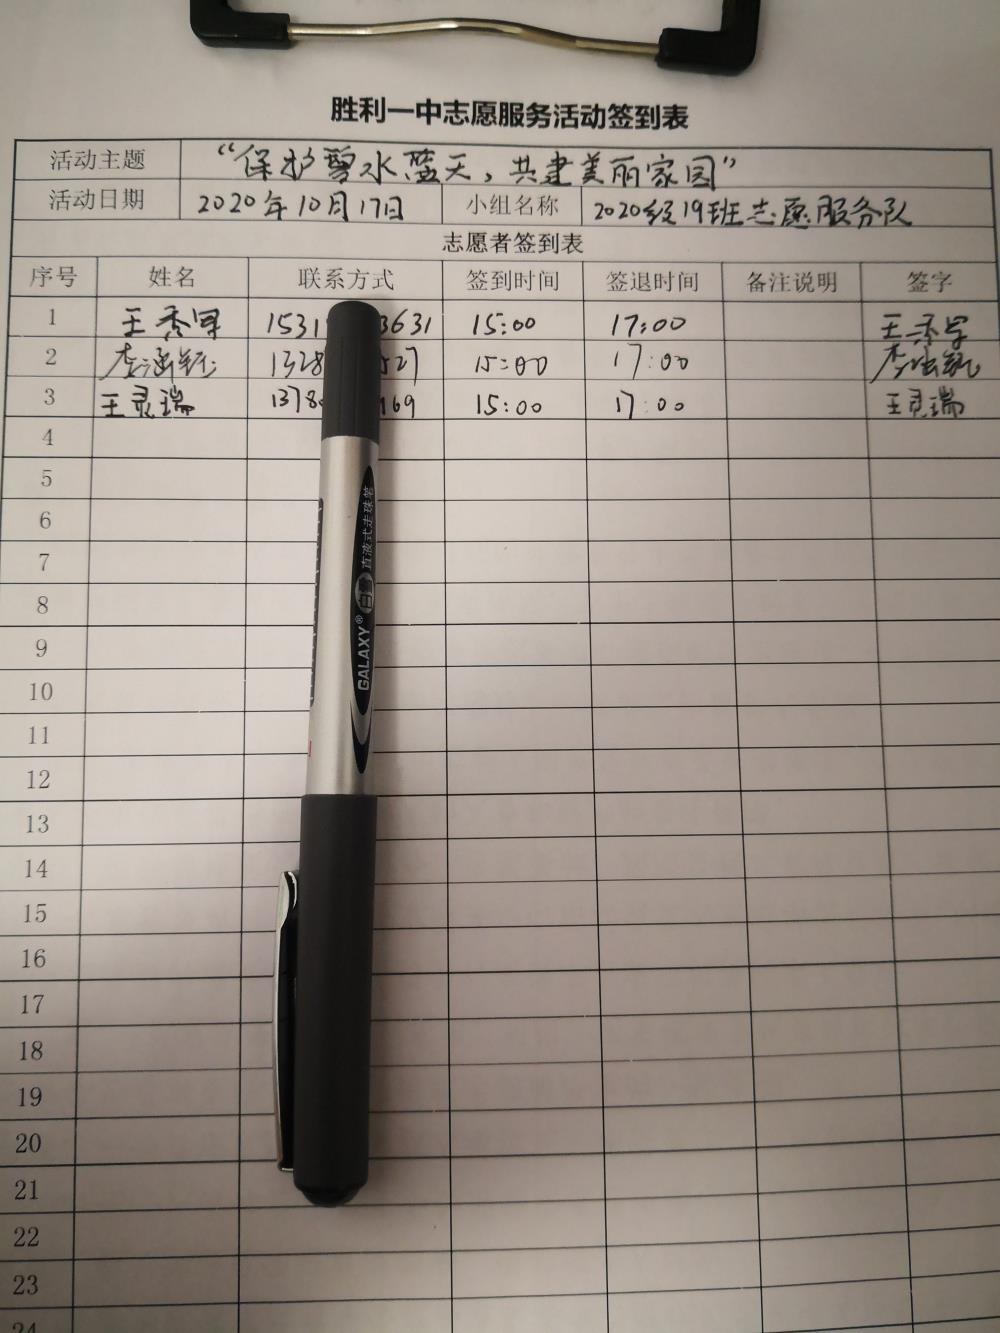 胜利一中志愿服务活动签到表
活动主题 “保护碧水蓝天，共建美丽家园”
活动日期 2020年10月17日 小组名称 2020级19班志愿服务队
志愿者签到表
序号 姓名 联系方式 签到时间 签退时间 备注说明 签字
1 王秀军 1531 3631 15:00 17:00 王秀军
2 李涵钰 1328 527 15:00 17:00 李涵钰
3 王灵瑞 1378 169 15:00 17:00 王灵瑞
4
5
6
7
8
9
10
11
12
13
14
15
16
17
18
19
20
21
22
23
24
GALAXY® 直液式走珠笔